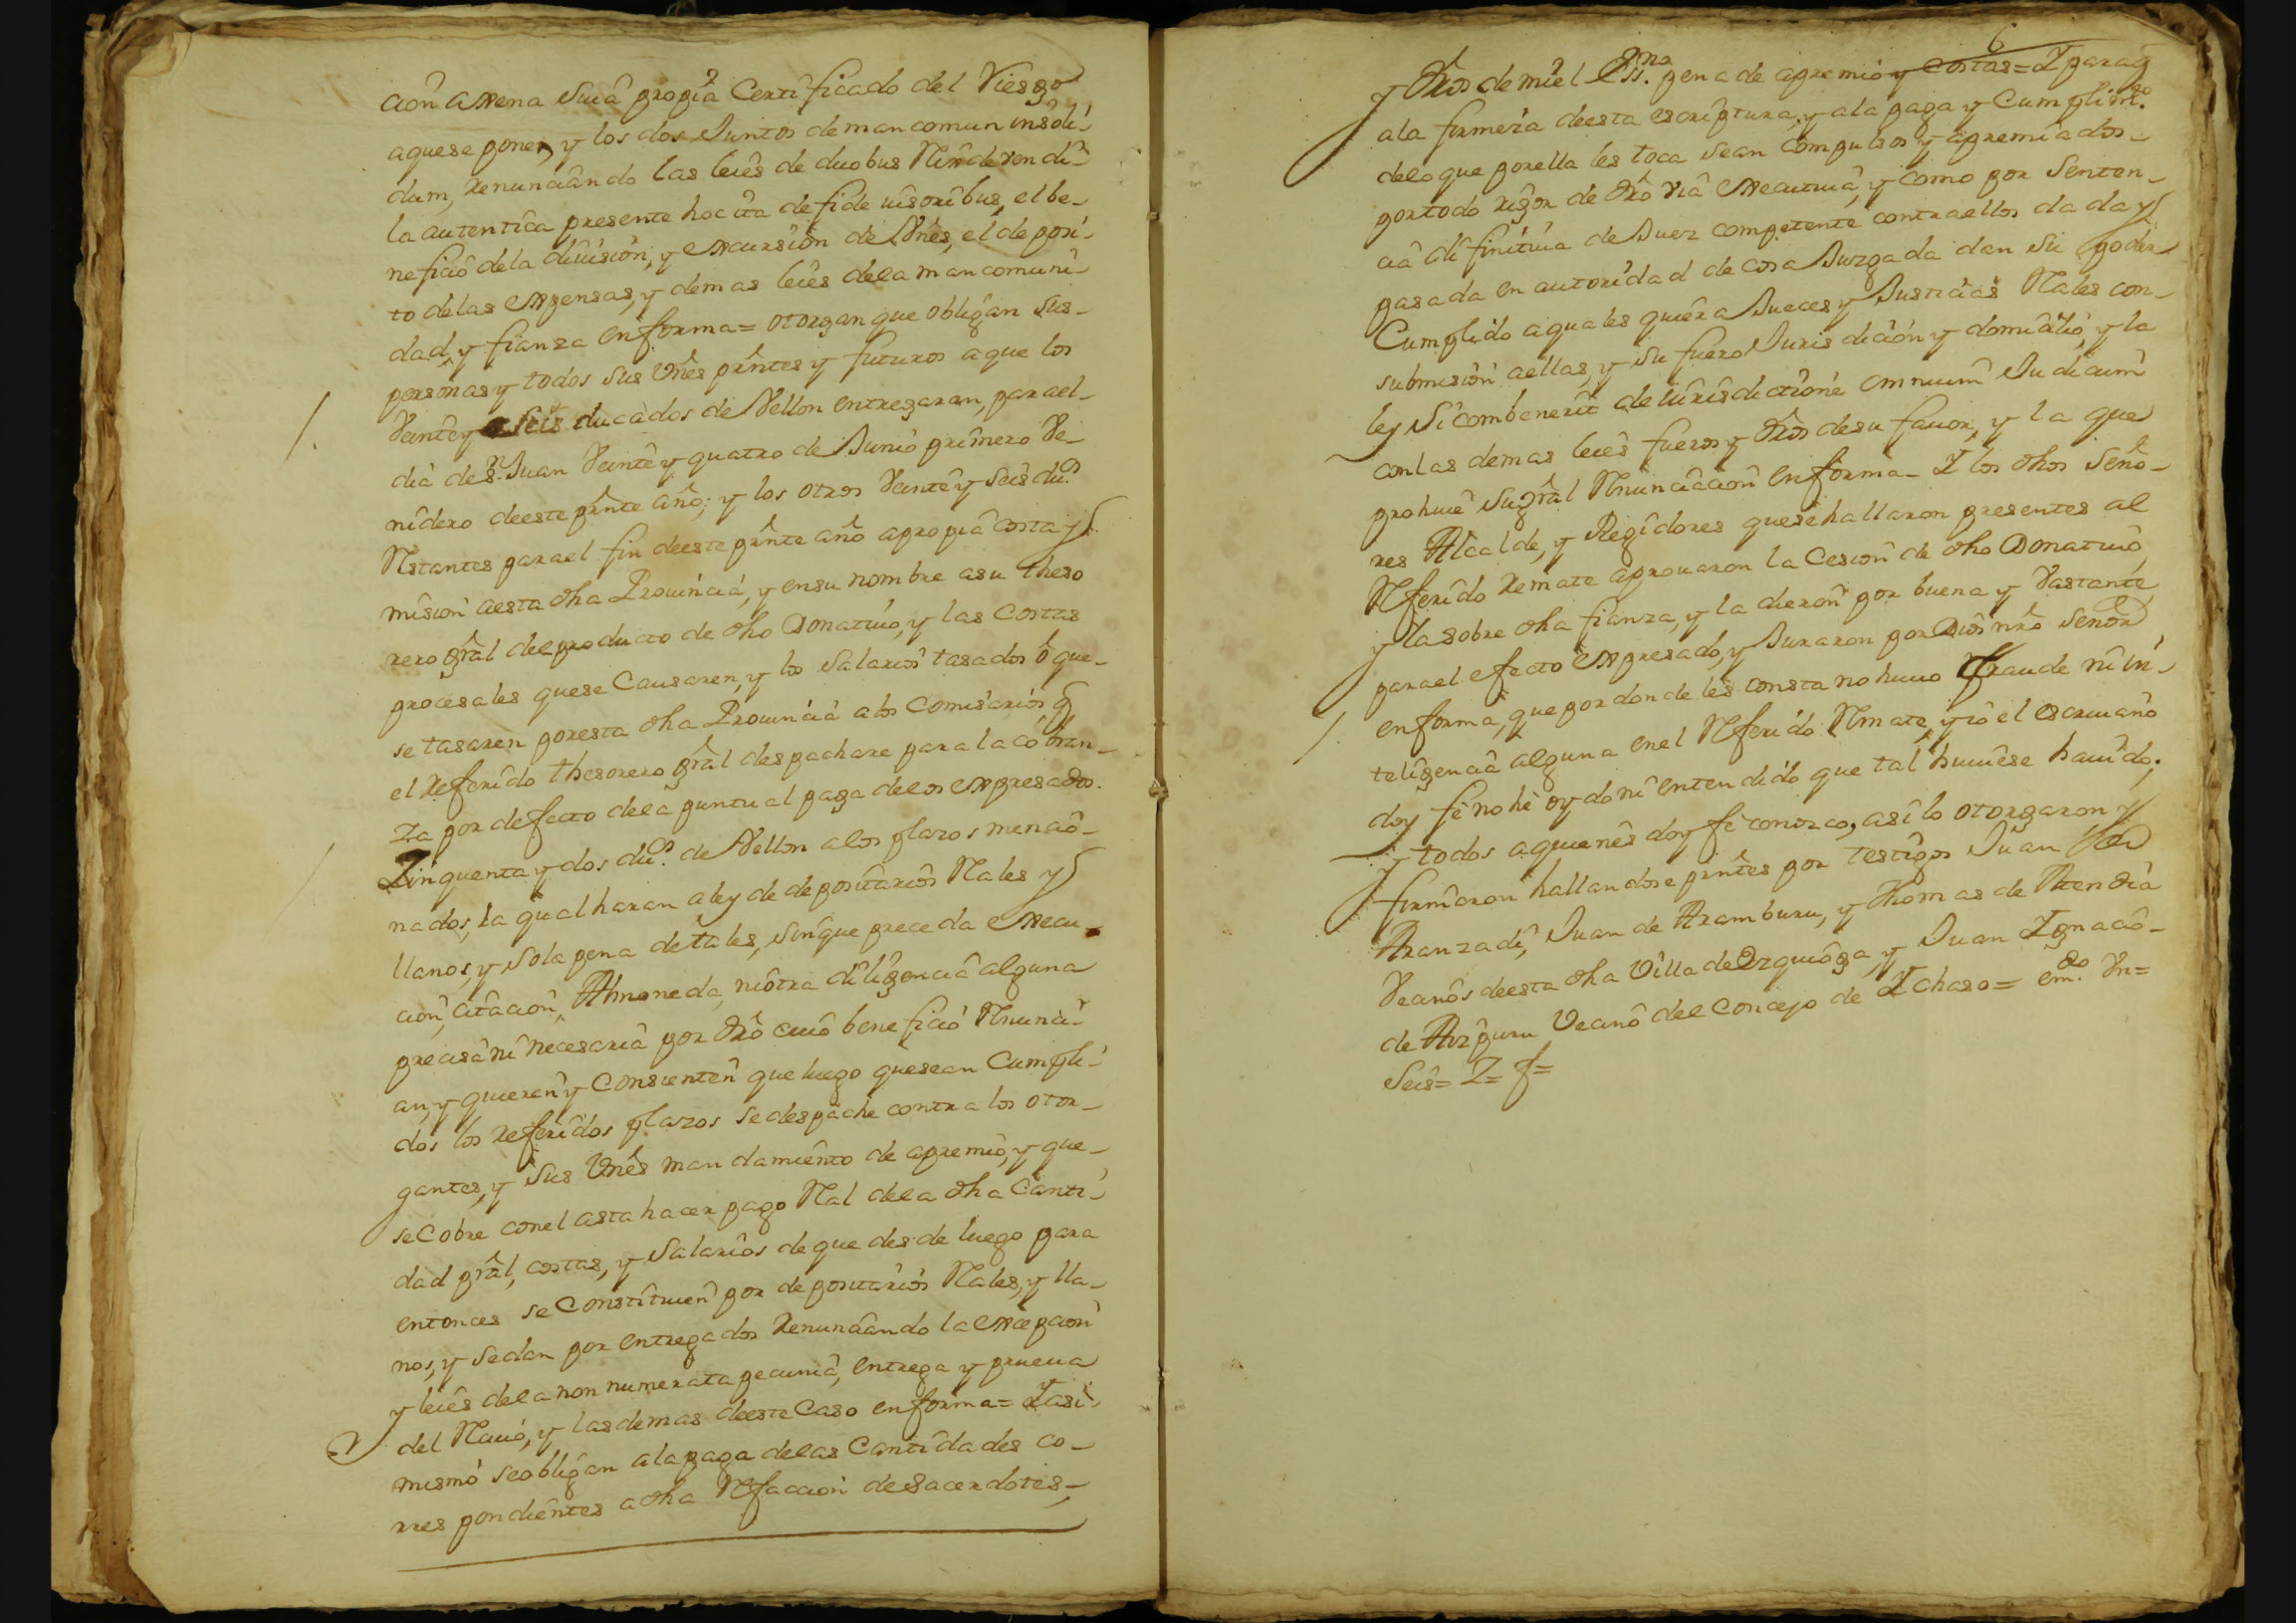 cion agena suia propia Certificado del Riesgo
aquese pone, y los dos Juntos de mancomun insoli-
dum, Renunciando las leies de duobus Reis de vendi-
la autentica presente hoc ita de fide iusoribus, el be-
neficio dela diuision, y excursion de Vnes, el deposi-
to delas expensas, y demas leies dela mancomuni-
dad, y fianza enforma= otorgan que obligan sus-
personas y todos sus Vnes pntes y futuros aque los
Veinte y Seis ducados de Vellon entregaran, para el-
dia de Sn. Juan Veinte y quatro de Junio primero Ve-
nidero deeste pnte año; y los otros Veinte y Seis dus.
Restantes para el fin deeste pnte año apropia costa y
mision aesta dha Prouincia, y ensu nombre asu theso
rero gral del producto de dho Donatiuo, y las costas
procesales quese Causaren, y los Salarios tasados ô que-
se tasaren poresta dha Prouincia alos Comisarios q
el Referido thesorero gral despachare para la cobran-
za por defecto dela puntual paga delos expresados.
Zinquenta y dos dus. de Vellon alos plazos mencio-
nados, la qual haran a ley de depositarios Rales y
llanos, y sola pena de tales, sin que preceda execu-
cion, citacion, Almoneda, ni otra diligencia alguna
precisa ni necesaria por dro cuio beneficio Renunci-
an, y quieren y Consienten que luego que sean Cumpli-
dos los Referidos plazos se despache contra los otor-
gantes, y sus Vnes mandamiento de apremio, y que-
se Cobre conel asta hacer pago Ral dela dha Canti-
dad pral, costas, y Salarios de que desde luego para
entonces se Constituien por depositarios Rales, y lla-
nos, y se dan por entregados Renunciando la excepcion
y leies dela non numerata pecunia, entrega y prueua
del Reciuo, y las demas deeste Caso en forma= Y asi
mismo se obligan ala paga delas Cantidades co-
rrespondientes a dha Refaccion de Sacerdotes-
6
y dros de mi el Essno. pena de apremio y costas= Y para q
ala firmeza deesta escriptura, y ala paga y Cumplimto.
delo que porella les toca sean compulsos y apremiados-
portodo rigor de dro via executiua, y como por Senten-
cia difinitiua de Juez competente contra ellos dada y
pasada en autoridad de cosa Juzgada dan su poder
Cumplido aquales quiera Jueces y Justicias Rales con-
submision aellas, y su fuero Jurisdicion y domicilio, y la
ley Si combenerit de iurisdictione omnium Judicum
con las demas leies fueros y dros de su fauor, y la que
prohiue su gral Renunciacion enforma- Y los dhos Seño-
res Alcalde, y Regidores quese hallaron presentes al
Referido Remate aprouaron la Cesion de dho Donatiuo,
y la sobre dha fianza, y la dieron por buena y Vastante
para el efecto expresado, y Juraron por Dios nro Señor
en forma, que por donde les consta no huuo fraude ni in-
teligencia alguna enel Referido Remate, y io el escriuano
doy fe no hê oydo ni entendido que tal huuiese hauido;
y todos aquienes doy fê conozco, asi lo otorgaron y
firmaron hallandose pntes por testigos Juan
Aranzadi, Juan de Aramburu, y Thomas de Atendia
Vecinos deesta dha Villa de Ezquioga, y Juan Ygnacio-
de Aizpuru Vecino del Concejo de Ychaso= emdo. Vn=
Seis= Z= f=